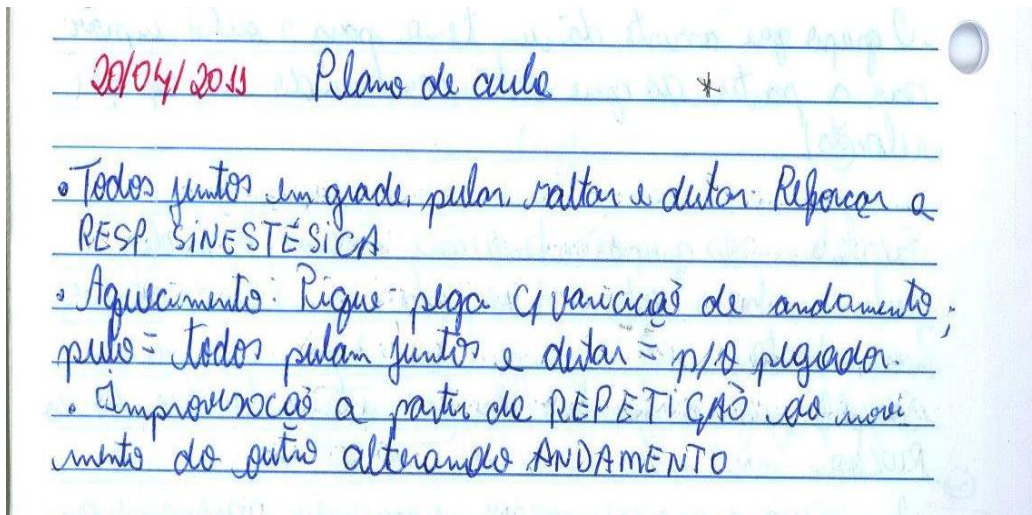 20/04/2011 Plano de aula *
• Todos juntos em grade, pular, saltar e deitar. Reforçar a
RESP. SINESTÉSICA
• Aquecimento: Pique-pega c/ variação de andamento;
pulo = todos pulam juntos e deitar = p/ o pegador.
• Improvisação a partir da REPETIÇÃO do movi
mento do outro alterando ANDAMENTO